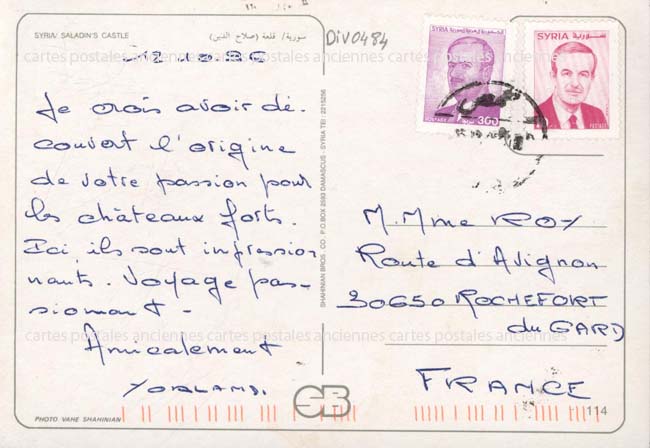 SYRIA: SALADIN'S CASTLE
سورية/ قلعة (صلاح الدين)
DiV0484
Je crois avoir dé-
couvert l'origine
de votre passion pour
les châteaux forts.
Ici, ils sont impression
nants. Voyage pas-
sionnant -
Amicalement
SHAHINIAN BROS. CO. P.O.BOX 2593 DAMASCUS - SYRIA TEL: 2215256
SYRIA
POSTAGE
300
SYRIA سورية
POSTAGE
M. Mme ROY
Route d'Avignon
30650 ROCHEFORT
du GARD
FRANCE
cartes postales anciennes cartes postales anciennes cartes postales anciennes
cartes postales anciennes cartes postales anciennes cartes postales anciennes
PHOTO VAHE SHAHINIAN
114